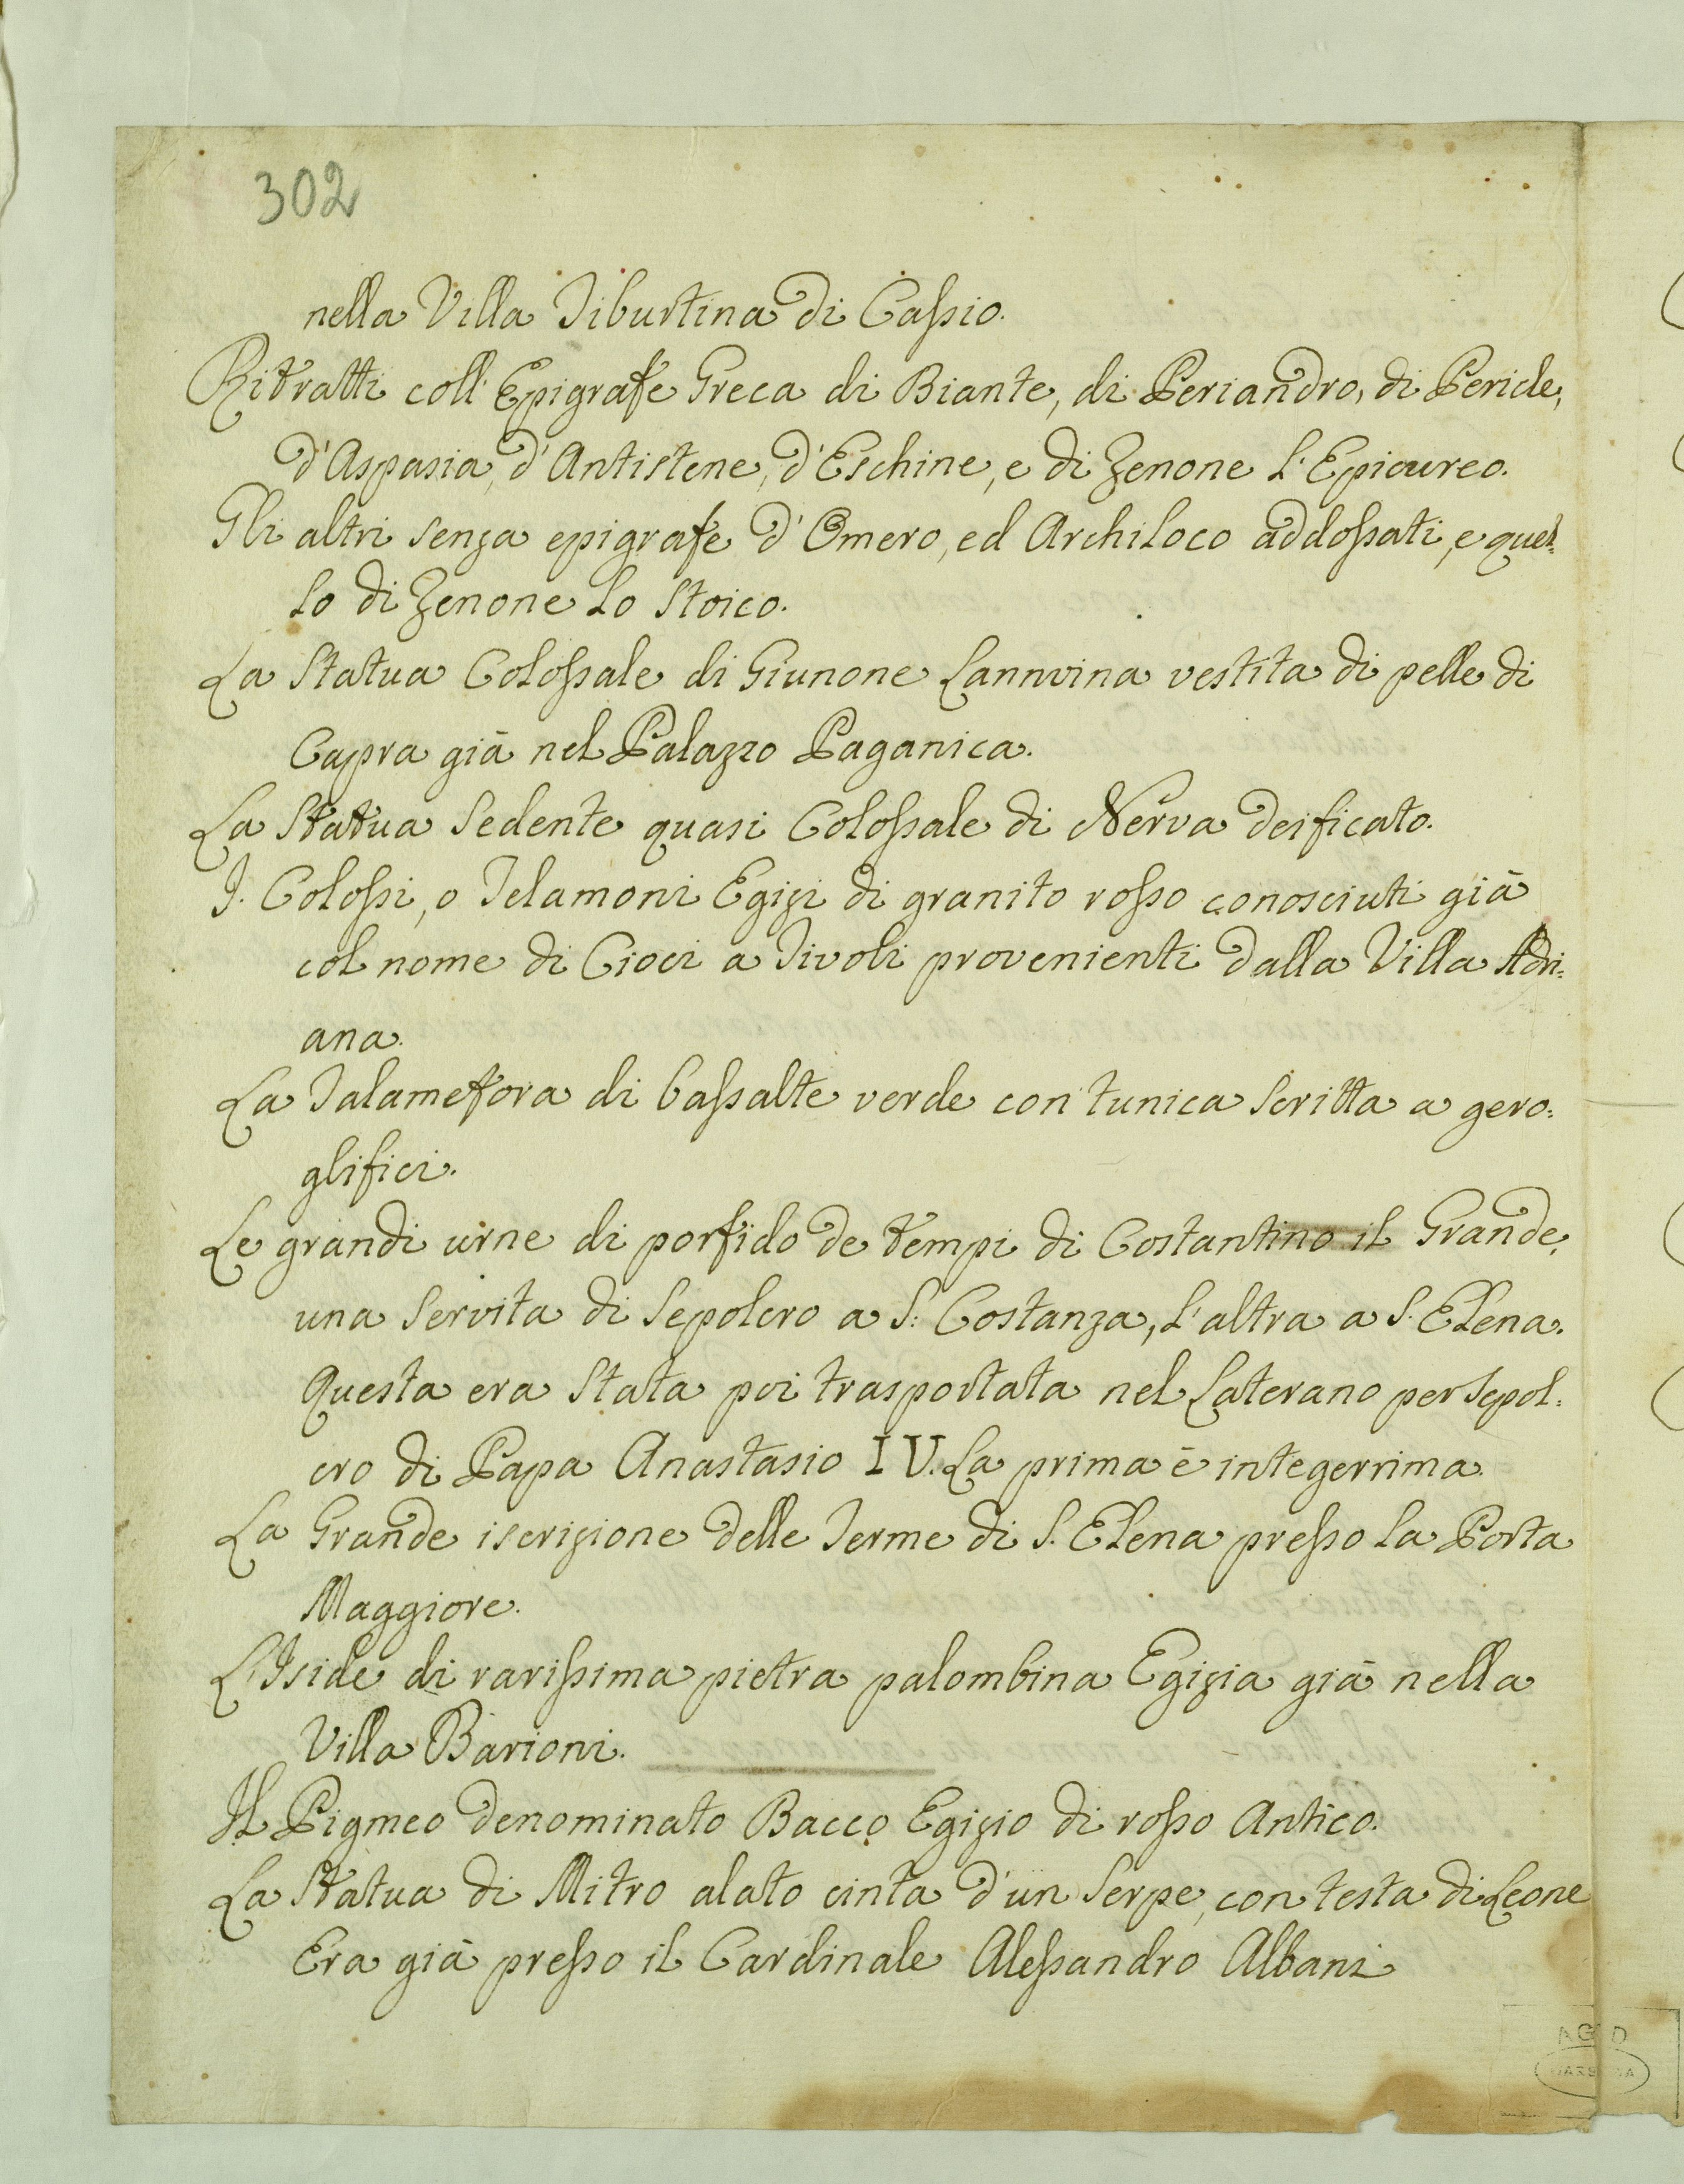 302
nella Villa Tiburtina di Cassio.
Ritratti coll'Epigrafe Greca di Biante, di Periandro, di Pericle,
d'Aspasia, d'Antistene, d'Eschine, e di Zenone l'Epicureo.
Gli altri senza epigrafe d'Omero, ed Archiloco addossati, e quel=
lo di Zenone lo Stoico.
La Statua Colossale di Giunone Lannvina vestita di pelle di
Capra già nel Palazzo Paganica.
La Statua Sedente quasi Colossale di Nerva deificato.
I. Colossi, o Telamoni Egizi di granito rosso conosciuti già
col nome di Cioci a Tivoli provenienti dalla Villa Adri=
ana.
La Talamefora di bassalte verde con tunica scritta a gero=
glifici.
Le grandi urne di porfido de tempi di Costantino il Grande,
una servita di Sepolcro a S. Costanza, l'altra a S. Elena.
Questa era stata poi trasportata nel Laterano per Sepol=
cro di Papa Anastasio IV. La prima è integerrima.
La Grande iscrizione delle Terme di S. Elena presso la Porta
Maggiore.
L'Iside di rarissima pietra palombina Egizia già nella
Villa Barioni.
Il Pigmeo denominato Bacco Egizio di rosso Antico.
La Statua di Mitro alato cinta d'un Serpe, con testa di Leone
Era già presso il Cardinale Alessandro Albani